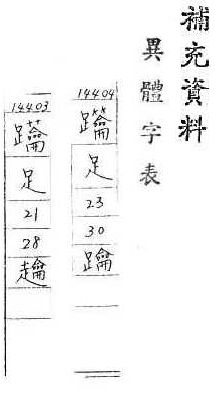 補充資料
異體字表
14404
足
23
30
14403
足
21
28